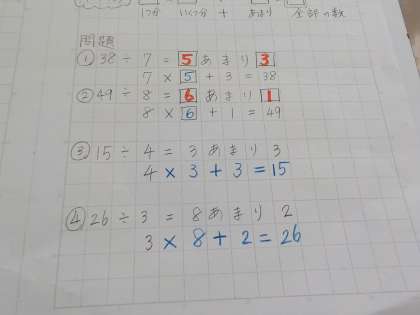 1つ分 いくつ分 + あまり 全部の数
問題
① 38 ÷ 7 = 5 あまり 3
7 × 5 + 3 = 38
② 49 ÷ 8 = 6 あまり 1
8 × 6 + 1 = 49
③ 15 ÷ 4 = 3 あまり 3
4 × 3 + 3 = 15
④ 26 ÷ 3 = 8 あまり 2
3 × 8 + 2 = 26